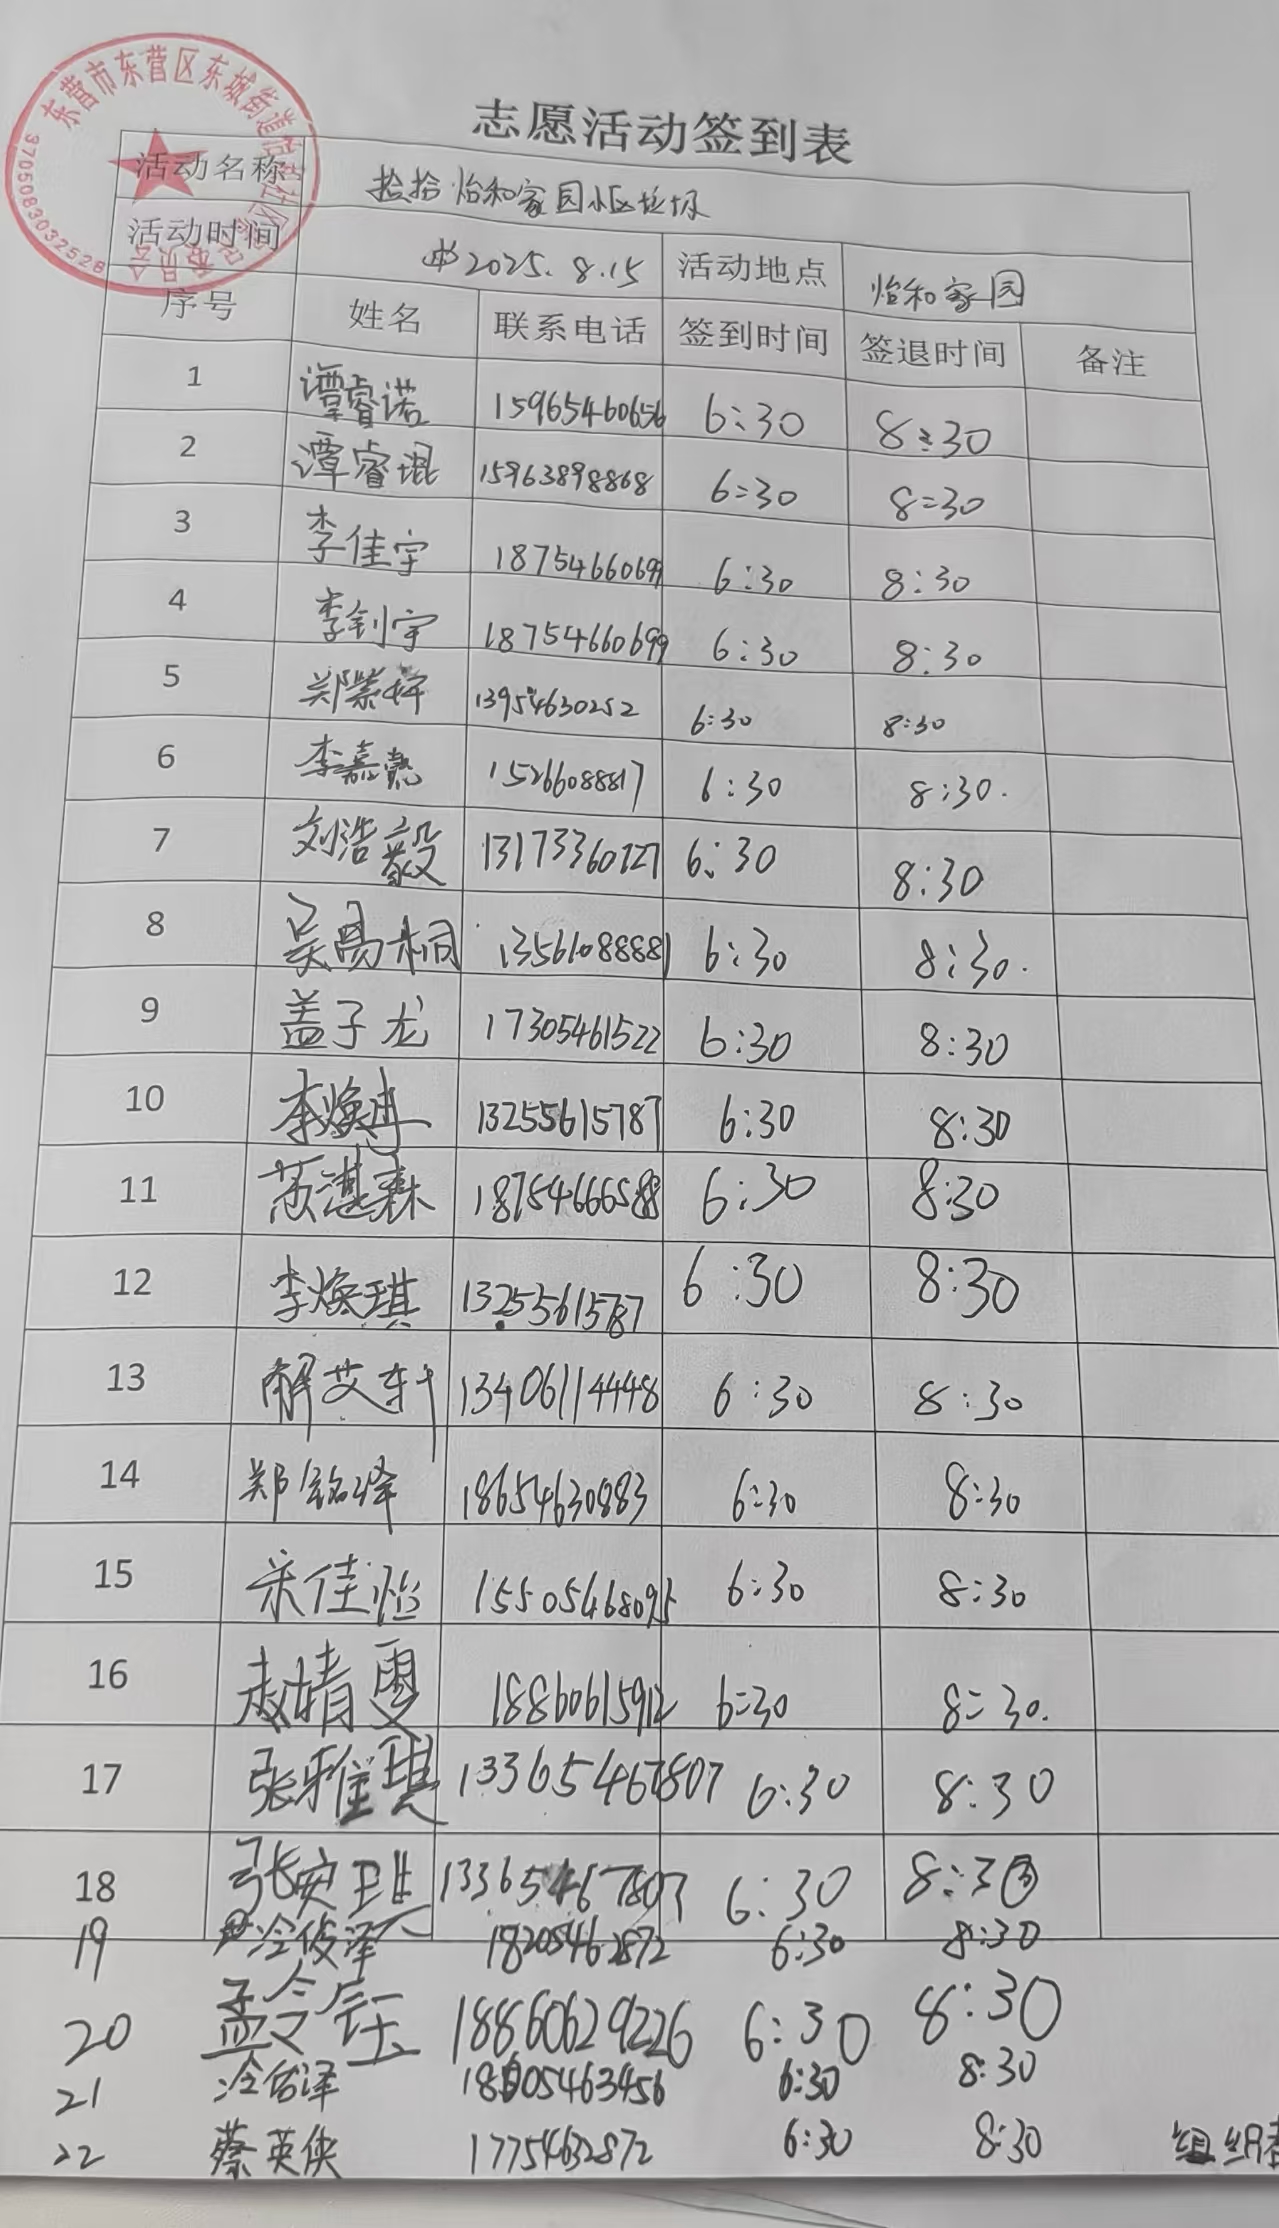 志愿活动签到表
东营市东营区东城街道
3705083032528
活动名称 捡拾怡和家园小区垃圾
活动时间 2025.8.15 活动地点 怡和家园
序号 姓名 联系电话 签到时间 签退时间 备注
1 谭睿诺 15965460656 6:30 8:30
2 谭睿琨 15963898868 6:30 8:30
3 李佳宇 18754660699 6:30 8:30
4 李钊宇 18754660699 6:30 8:30
5 郑 13954630252 6:30 8:30
6 李嘉 15266088817 6:30 8:30.
7 刘浩毅 13173360727 6:30 8:30
8 吴禹桐 13561088881 6:30 8:30.
9 盖子龙 17305461522 6:30 8:30
10 李焕冉 13255615787 6:30 8:30
11 范湛森 18754666588 6:30 8:30
12 李焕琪 13255615787 6:30 8:30
13 解艾轩 13406114448 6:30 8:30
14 郑铭泽 18654630883 6:30 8:30
15 宋佳怡 15505468095 6:30 8:30
16 赵婧雯 18860615912 6:30 8:30.
17 张雅琪 13365467807 6:30 8:30
18 张安琪 13365467807 6:30 8:30
19 冷俊泽 18205462872 6:30 8:30
20 孟令钰 18860629226 6:30 8:30
21 冷佑泽 18605463456 6:30 8:30
22 蔡英侠 17754632872 6:30 8:30 组织者